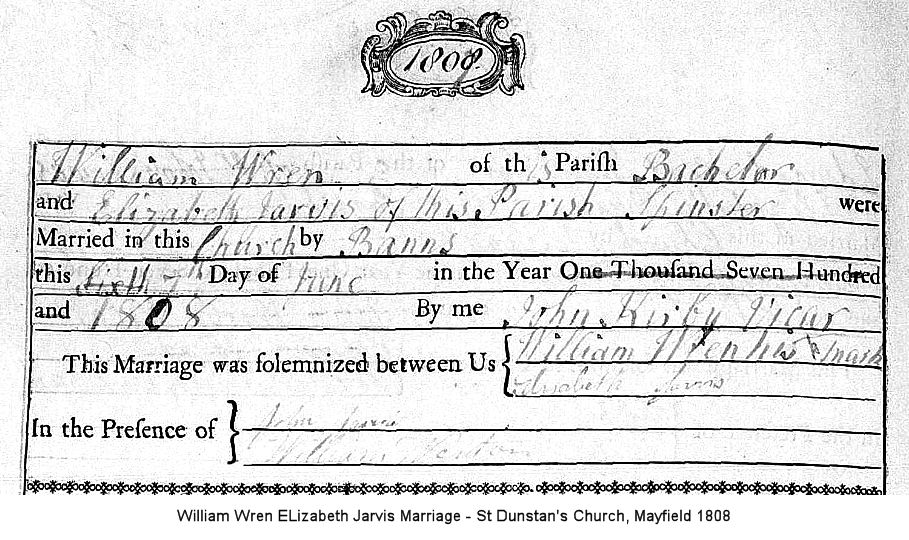 1808.
William Wren of this Pariſh Bachelor
and Elizabeth Jarvis of this Parish Spinster were
Married in this Church by Banns
this Sixth Day of June in the Year One Thouſand Seven Hundred
and 1808 By me John Kirby Vicar
This Marriage was ſolemnized between Us { William Wren his x mark
Elisabeth Jarvis
In the Preſence of } John Jarvis
William
William Wren ELizabeth Jarvis Marriage - St Dunstan's Church, Mayfield 1808